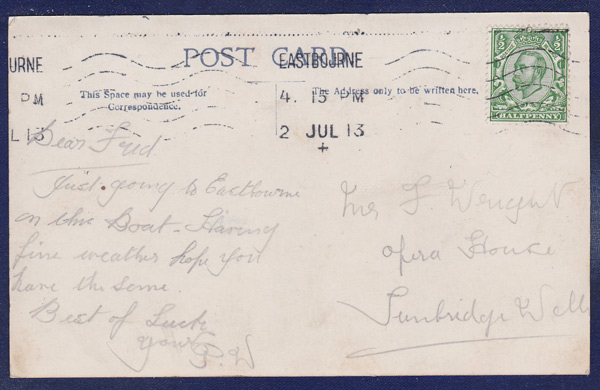 URNE
PM
L 13
POST CARD
EASTBOURNE
4. 15 PM
2 JUL 13
½ ½
HALFPENNY
This Space may be used for
Correspondence.
The Address only to be written here.
Dear Fred
Just going to Eastbourne
on this Boat - Having
fine weather hope you
have the same.
Best of Luck
Yours
P.W
F Wright
Opera House
Tunbridge Wells